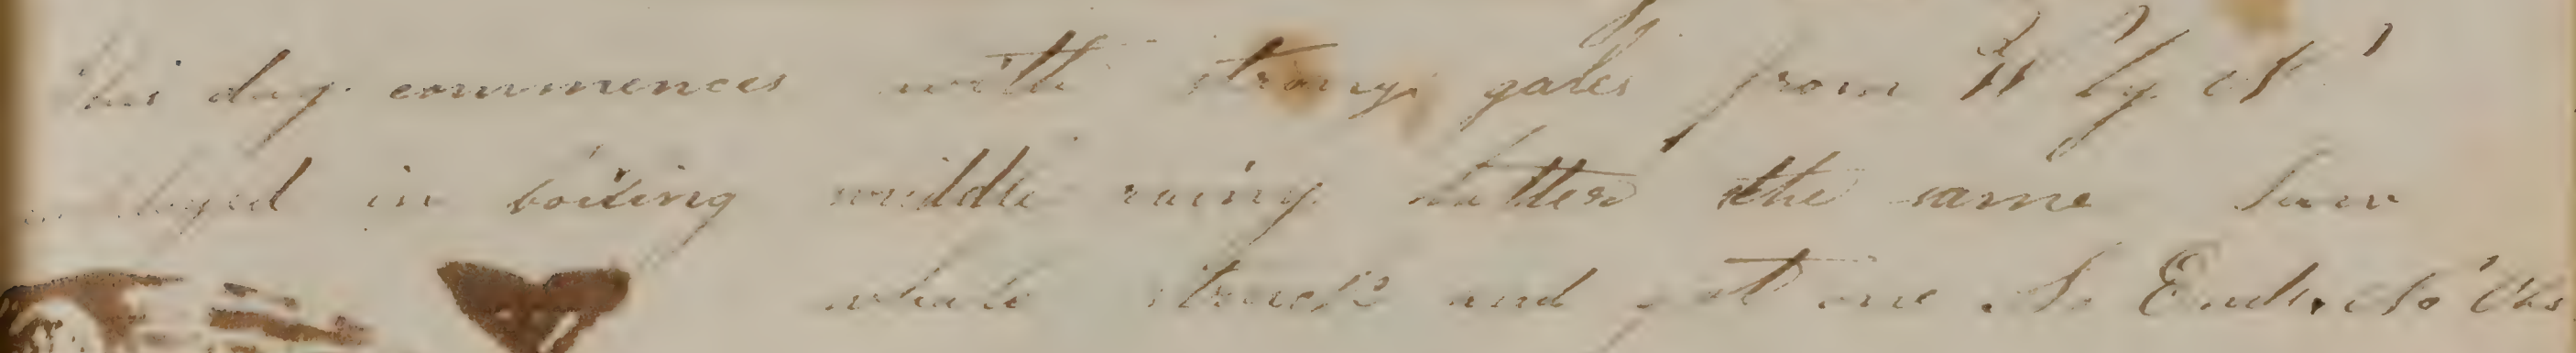 this day commences with strong gales from W'ly at
employed in boiling middle rainy latter the same saw
whale struck and got one So Ends